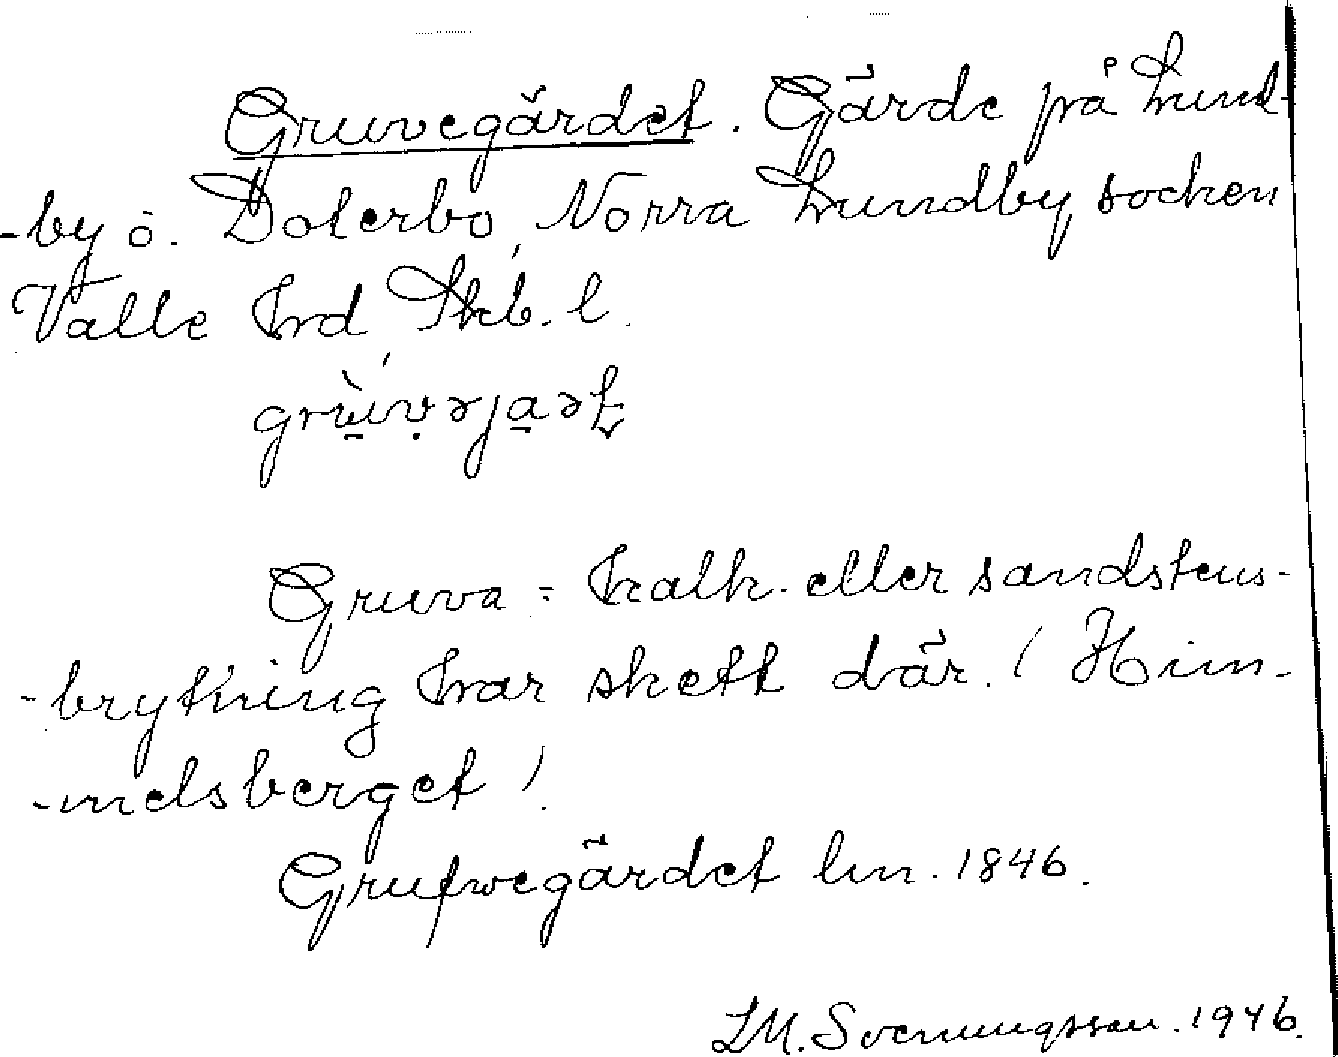 Gruvegärdet. Gärde på Lund-
-by ö. Dolerbo, Norra Lundby socken
Valle hrd Skb. l.
Gruva = kalk- eller sandstens-
-brytning har skett där. (Him-
-melsberget)
Grufwegärdet lm. 1846.
LM. Svenungsson. 1946.